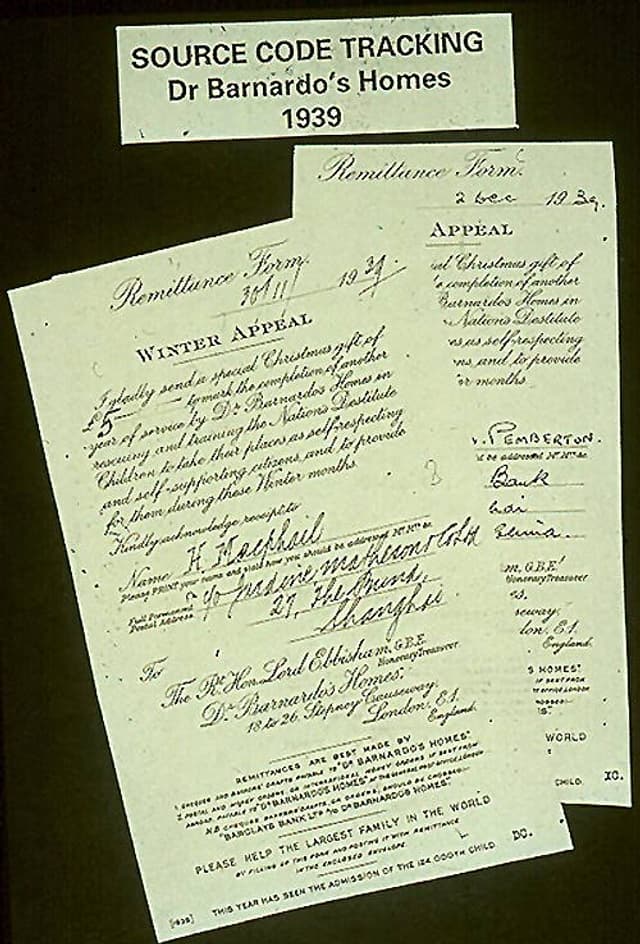 SOURCE CODE TRACKING
Dr Barnardo's Homes
1939
Remittance Form.
2 Dec 1939.
APPEAL
al Christmas gift of
completion of another
Barnardos Homes in
Nation's Destitute
ns as self-respecting
ns, and to provide
er months.
PEMBERTON.
Bank
China.
m, G.B.E.
Honorary Treasurer
es.
seway,
lon, E.1.
England.
S HOMES"
IF SENT FROM
T OFFICE LONDON
WORLD
CHILD. XC.
Remittance Form.
30/11 1939
WINTER APPEAL
I gladly send a special Christmas gift of
£5 to mark the completion of another
year of service by Dr Barnardo's Homes in
rescuing and training the Nation's Destitute
Children to take their places as self-respecting
and self-supporting citizens, and to provide
for them during these Winter months.
Kindly acknowledge receipt to
Name H. Macphail
Please PRINT your name and state how you should be addressed Mr. Mrs. &c.
Full Permanent c/o Jardine Matheson & Co Ltd
Postal Address 27, The Bund,
Shanghai
To
The Rt. Hon. Lord Ebbisham, G.B.E.
Honorary Treasurer
Dr. Barnardo's Homes,
18 to 26, Stepney Causeway,
London, E.1.
England.
REMITTANCES ARE BEST MADE BY
1. CHEQUES AND BANKERS' DRAFTS PAYABLE TO "DR BARNARDO'S HOMES".
2. POSTAL AND MONEY ORDERS, OR INTERNATIONAL MONEY ORDERS IF SENT FROM
ABROAD, PAYABLE TO "DR BARNARDO'S HOMES" AT THE GENERAL POST OFFICE, LONDON
N.B. CHEQUES, BANKERS' DRAFTS, OR ORDERS, SHOULD BE CROSSED:-
"BARCLAYS BANK LTD A/C DR BARNARDO'S HOMES".
PLEASE HELP THE LARGEST FAMILY IN THE WORLD
BY FILLING UP THIS FORM AND POSTING IT WITH REMITTANCE
IN THE ENCLOSED ENVELOPE.
THIS YEAR HAS SEEN THE ADMISSION OF THE 124,000TH CHILD. DC.